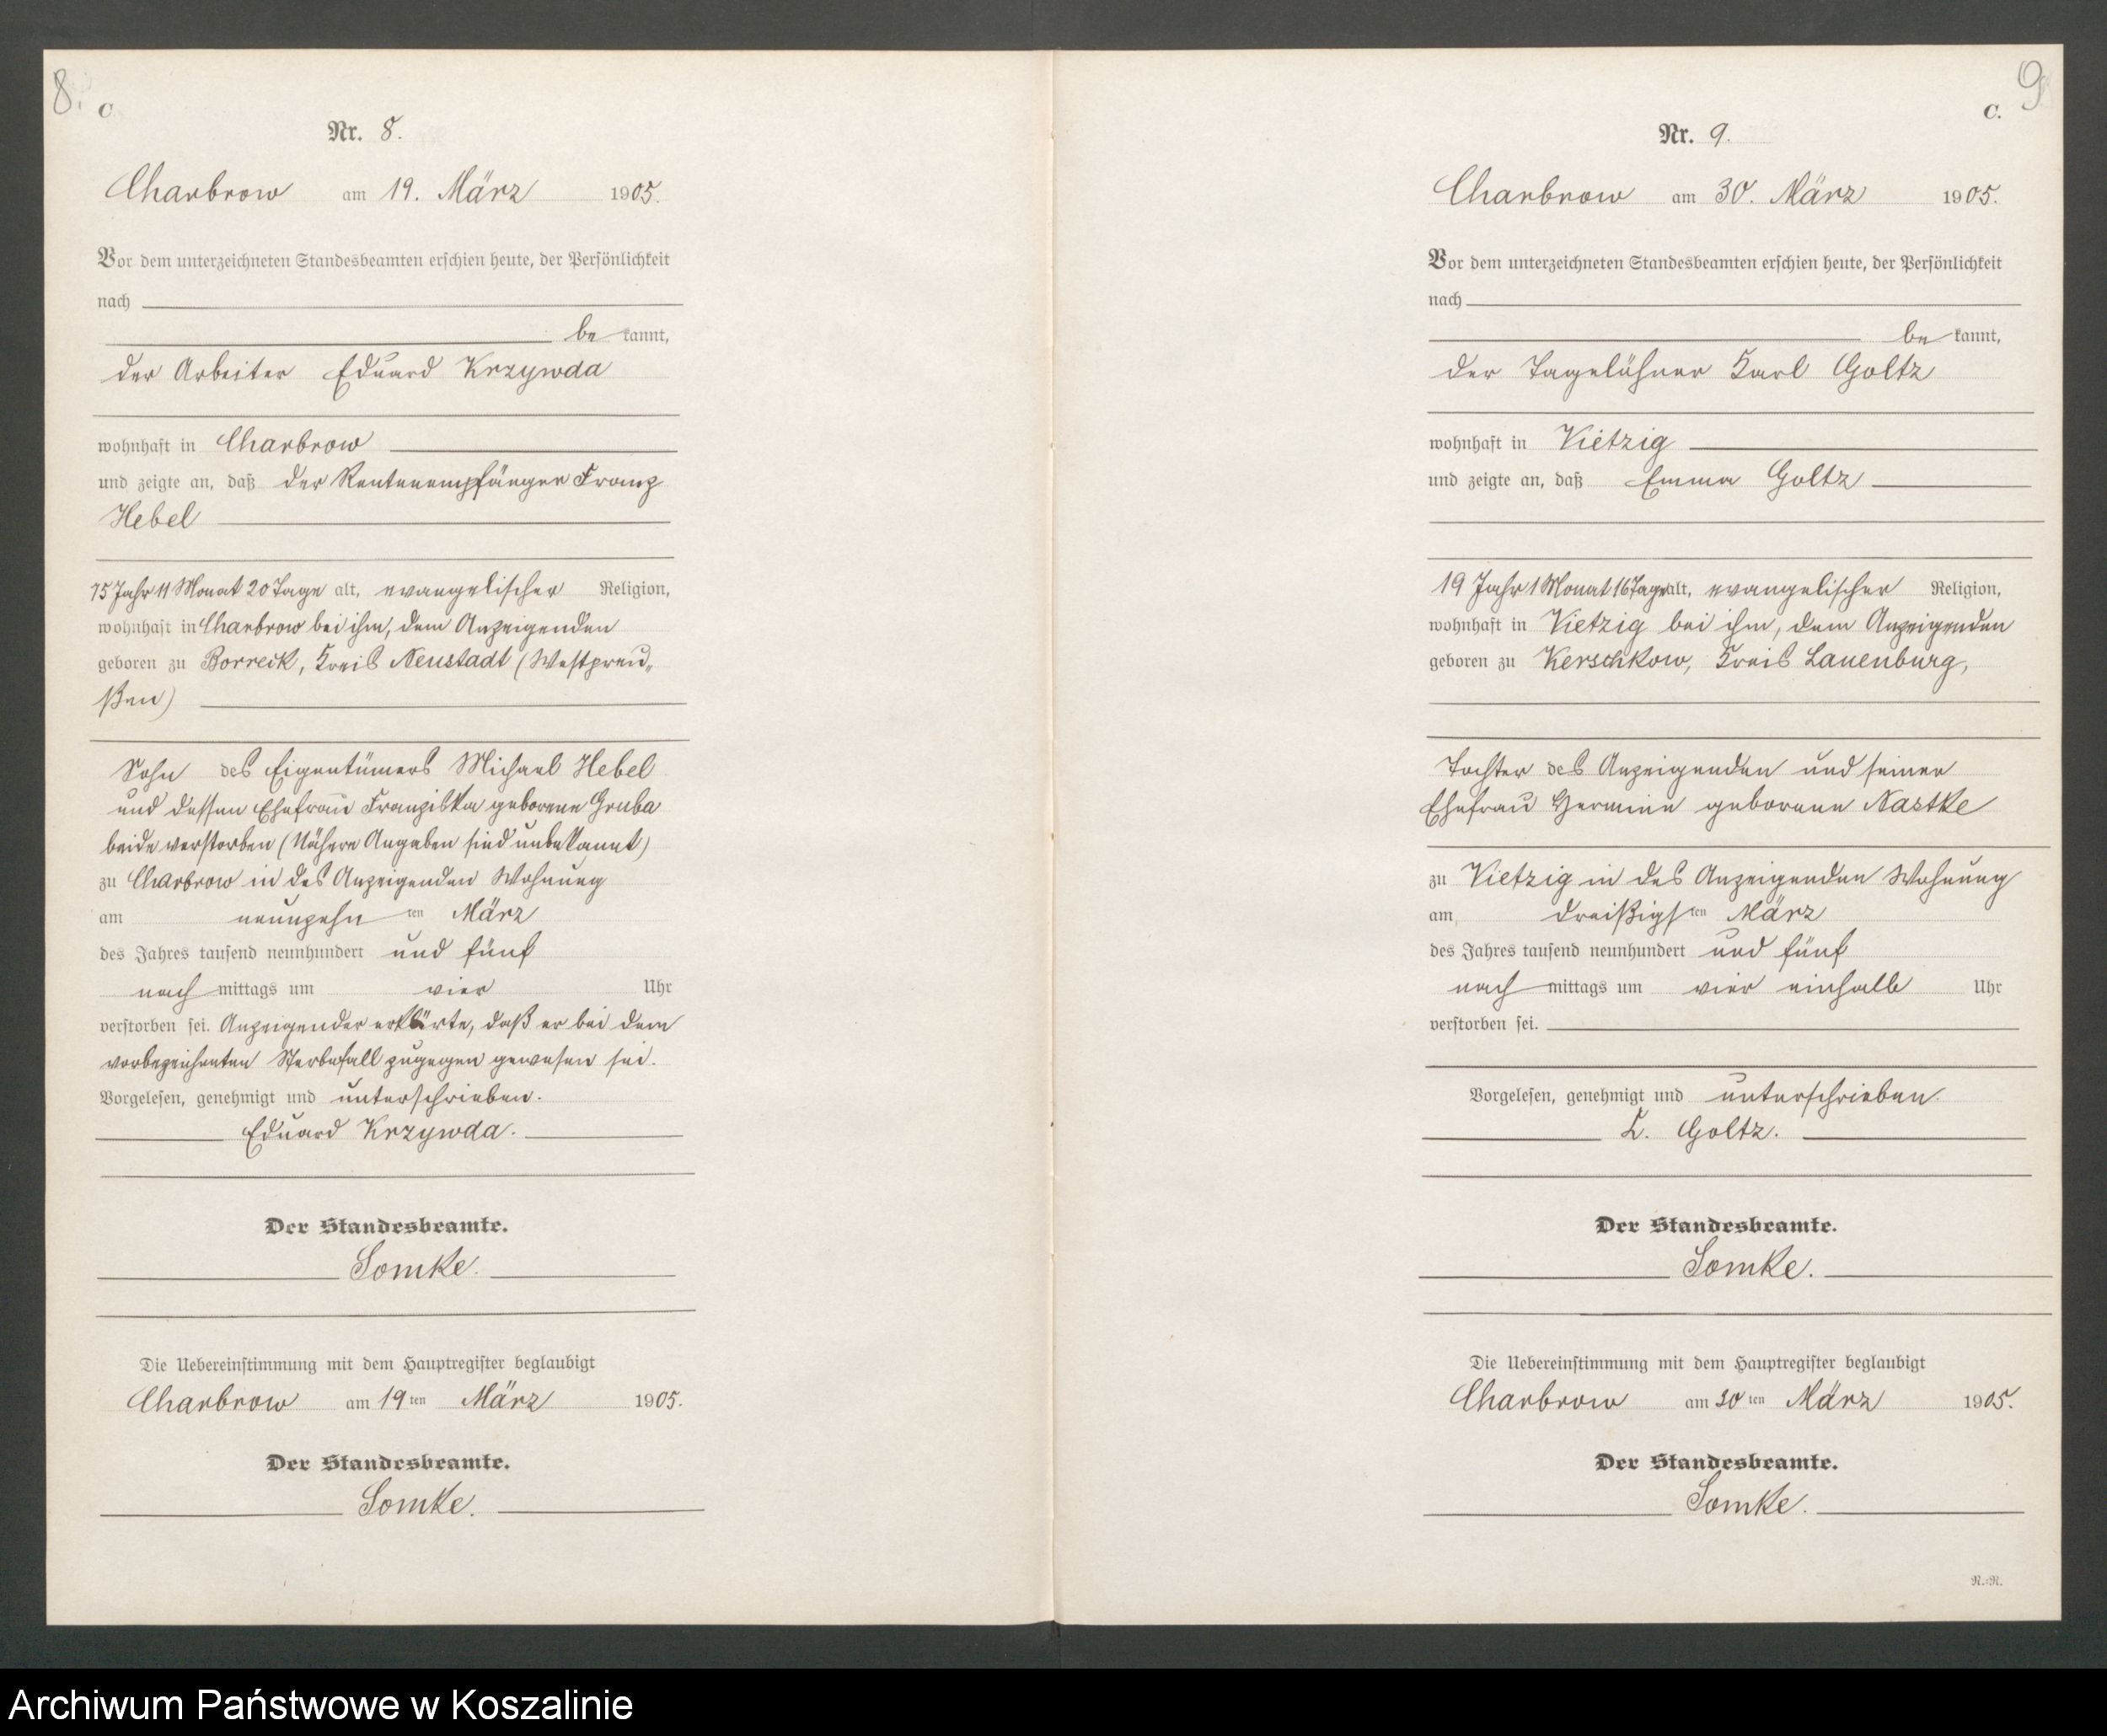 8.
C
Nr. 8.
Charbrow am 19. März 1905.
Vor dem unterzeichneten Standesbeamten erschien heute, der Persönlichkeit
nach
bekannt,
der Arbeiter Eduard Krzywda
wohnhaft in Charbrow
und zeigte an, daß der Rentenempfänger Franz
Hebel
75 Jahr 11 Monat 20 Tage alt, evangelischer Religion,
wohnhaft in Charbrow bei ihm, dem Anzeigenden
geboren zu Borreck, Kreis Neustadt (Westpreu„
ßen)
Sohn des Eigentümers Michael Hebel
und dessen Ehefrau Franziska geborene Gruba
beide verstorben (Nähere Angaben sind unbekannt)
zu Charbrow in des Anzeigenden Wohnung
am neunzehnten März
des Jahres tausend neunhundert und fünf
nachmittags um vier Uhr
verstorben sei. Anzeigender erklärte, daß er bei dem
vorbezeichneten Sterbefall zugegen gewesen sei.
Vorgelesen, genehmigt und unterschrieben.
Eduard Krzywda.
Der Standesbeamte.
Somke.
Die Uebereinstimmung mit dem Hauptregister beglaubigt
Charbrow am 19ten März 1905.
Der Standesbeamte.
Somke.
9
C.
Nr. 9.
Charbrow am 30. März 1905.
Vor dem unterzeichneten Standesbeamten erschien heute, der Persönlichkeit
nach
bekannt,
der Tagelöhner Karl Goltz
wohnhaft in Vietzig
und zeigte an, daß Emma Goltz
19 Jahr 1 Monat 16 Tage alt, evangelischer Religion,
wohnhaft in Vietzig bei ihm, dem Anzeigenden
geboren zu Kerschkow, Kreis Lauenburg,
Tochter des Anzeigenden und seiner
Ehefrau Hermine geborene Nastke
zu Vietzig in des Anzeigenden Wohnung
am dreißigsten März
des Jahres tausend neunhundert und fünf
nachmittags um vier einhalb Uhr
verstorben sei.
Vorgelesen, genehmigt und unterschrieben.
K. Goltz.
Der Standesbeamte.
Somke.
Die Uebereinstimmung mit dem Hauptregister beglaubigt
Charbrow am 30ten März 1905.
Der Standesbeamte.
Somke.
R.-R.
Archiwum Państwowe w Koszalinie